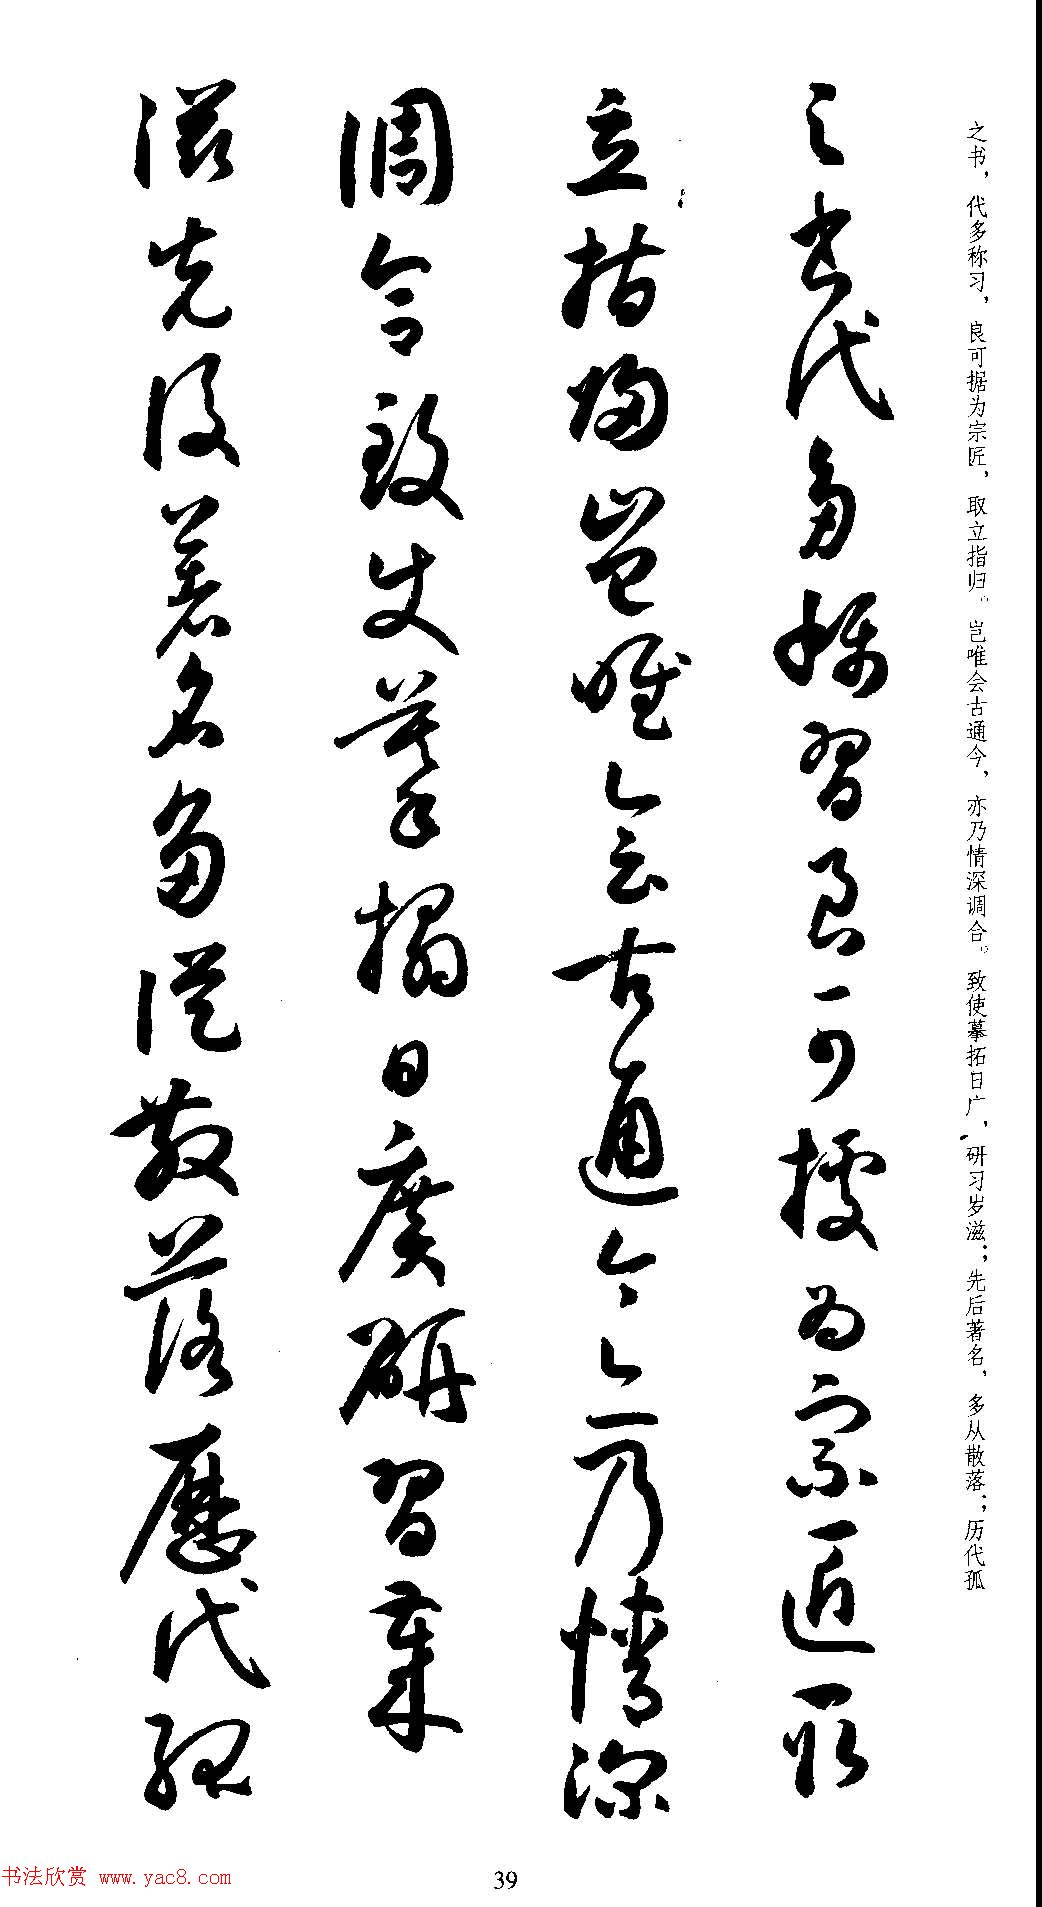 之书，代多称习，良可据为宗匠，取立指归。岂唯会古通今，亦乃情深调合。致使摹拓日广，研习岁滋；先后著名，多从散落；历代孤
之书代多称习良可據为宗匠取
立指归岂唯会古通今亦乃情深
调合致使摹搨日廣研習歳
滋先後著名多從散落歷代孤
39
书法欣赏 www.yac8.com